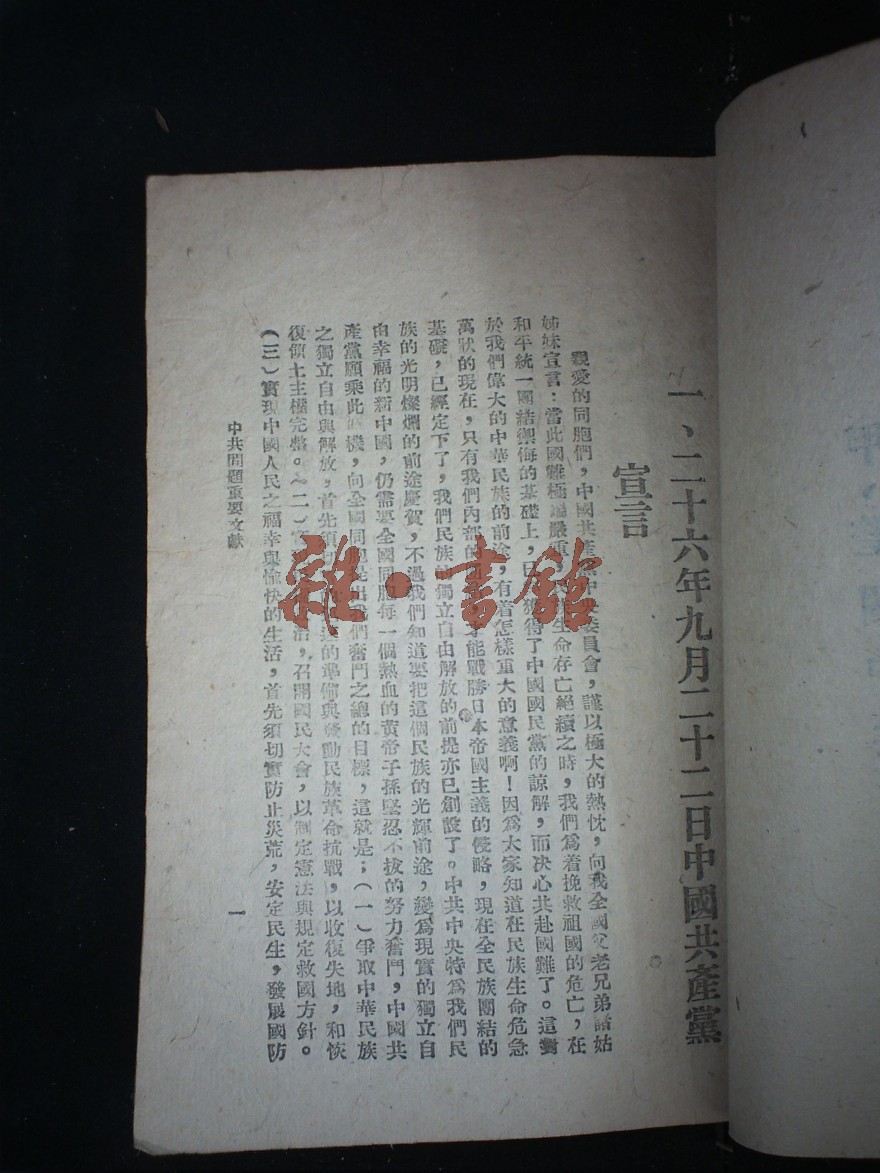 一、二十六年九月二十二日中國共產黨
宣言
親愛的同胞們，中國共產 中央委員會，謹以極大的熱忱，向我全國父老兄弟諸姑
姊妹宣言：當此國難極 嚴重 生命存亡絕續之時，我們爲着挽救祖國的危亡，在
和平統一團結禦侮的基礎上，已 獲得了中國國民黨的諒解，而决心共赴國難了。這對
於我們偉大的中華民族的前途，有着怎樣重大的意義啊！因爲大家知道在民族生命危急
萬狀的現在，只有我們內部的 才能戰勝日本帝國主義的侵略，現在全民族團結的
基礎，已經定下了，我們民族 獨立自由解放的前提亦已創設了。中共中央特爲我們民
族的光明燦爛的前途慶賀，不過我們知道要把這個民族的光輝前途，變爲現實的獨立自
由幸福的新中國，仍需要全國同胞每一個熱血的黃帝子孫堅忍不拔的努力奮鬥，中國共
產黨願乘此 機，向全國同胞提出我們奮鬥之總的目標，這就是；（一）爭取中華民族
之獨立自由與解放，首先須 的準備與發動民族革命抗戰，以收復失地，和恢
復領土主權完整。（二） 治，召開國民大會，以制定憲法與規定救國方針。
（三）實現中國人民之福幸與愉快的生活，首先須切實防止災荒，安定民生，發展國防
中共問題重要文獻
一
雜·書館